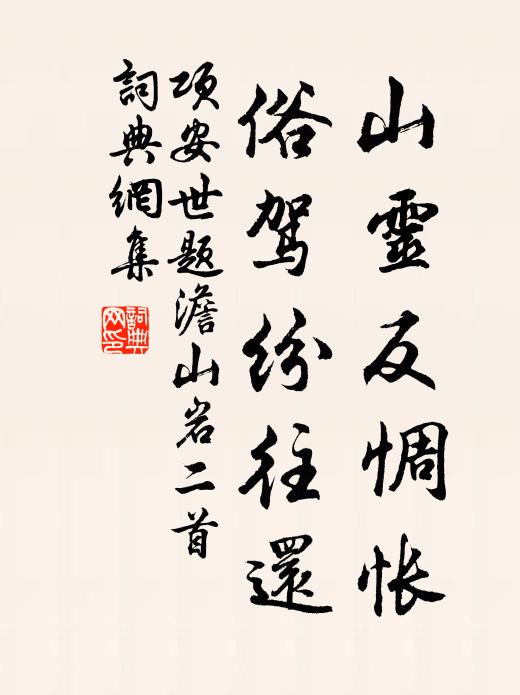 山靈反惆怅
俗駕紛往還
项安世题澹山岩二首
詞典網集
詞典网印